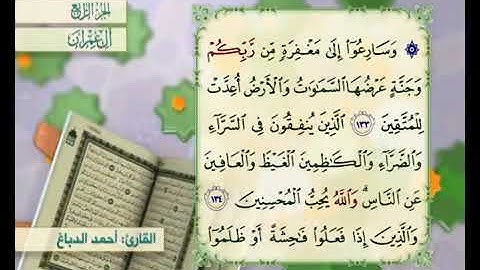 الجزء الرابع
آل عمران
۞ وَسَارِعُوٓا۟ إِلَىٰ مَغْفِرَةٍ مِّن رَّبِّكُمْ
وَجَنَّةٍ عَرْضُهَا ٱلسَّمَٰوَٰتُ وَٱلْأَرْضُ أُعِدَّتْ
لِلْمُتَّقِينَ ١٣٣ ٱلَّذِينَ يُنفِقُونَ فِى ٱلسَّرَّآءِ
وَٱلضَّرَّآءِ وَٱلْكَٰظِمِينَ ٱلْغَيْظَ وَٱلْعَافِينَ
عَنِ ٱلنَّاسِ ۗ وَٱللَّهُ يُحِبُّ ٱلْمُحْسِنِينَ ١٣٤
وَٱلَّذِينَ إِذَا فَعَلُوا۟ فَٰحِشَةً أَوْ ظَلَمُوٓا۟
القارئ: أحمد الدباغ